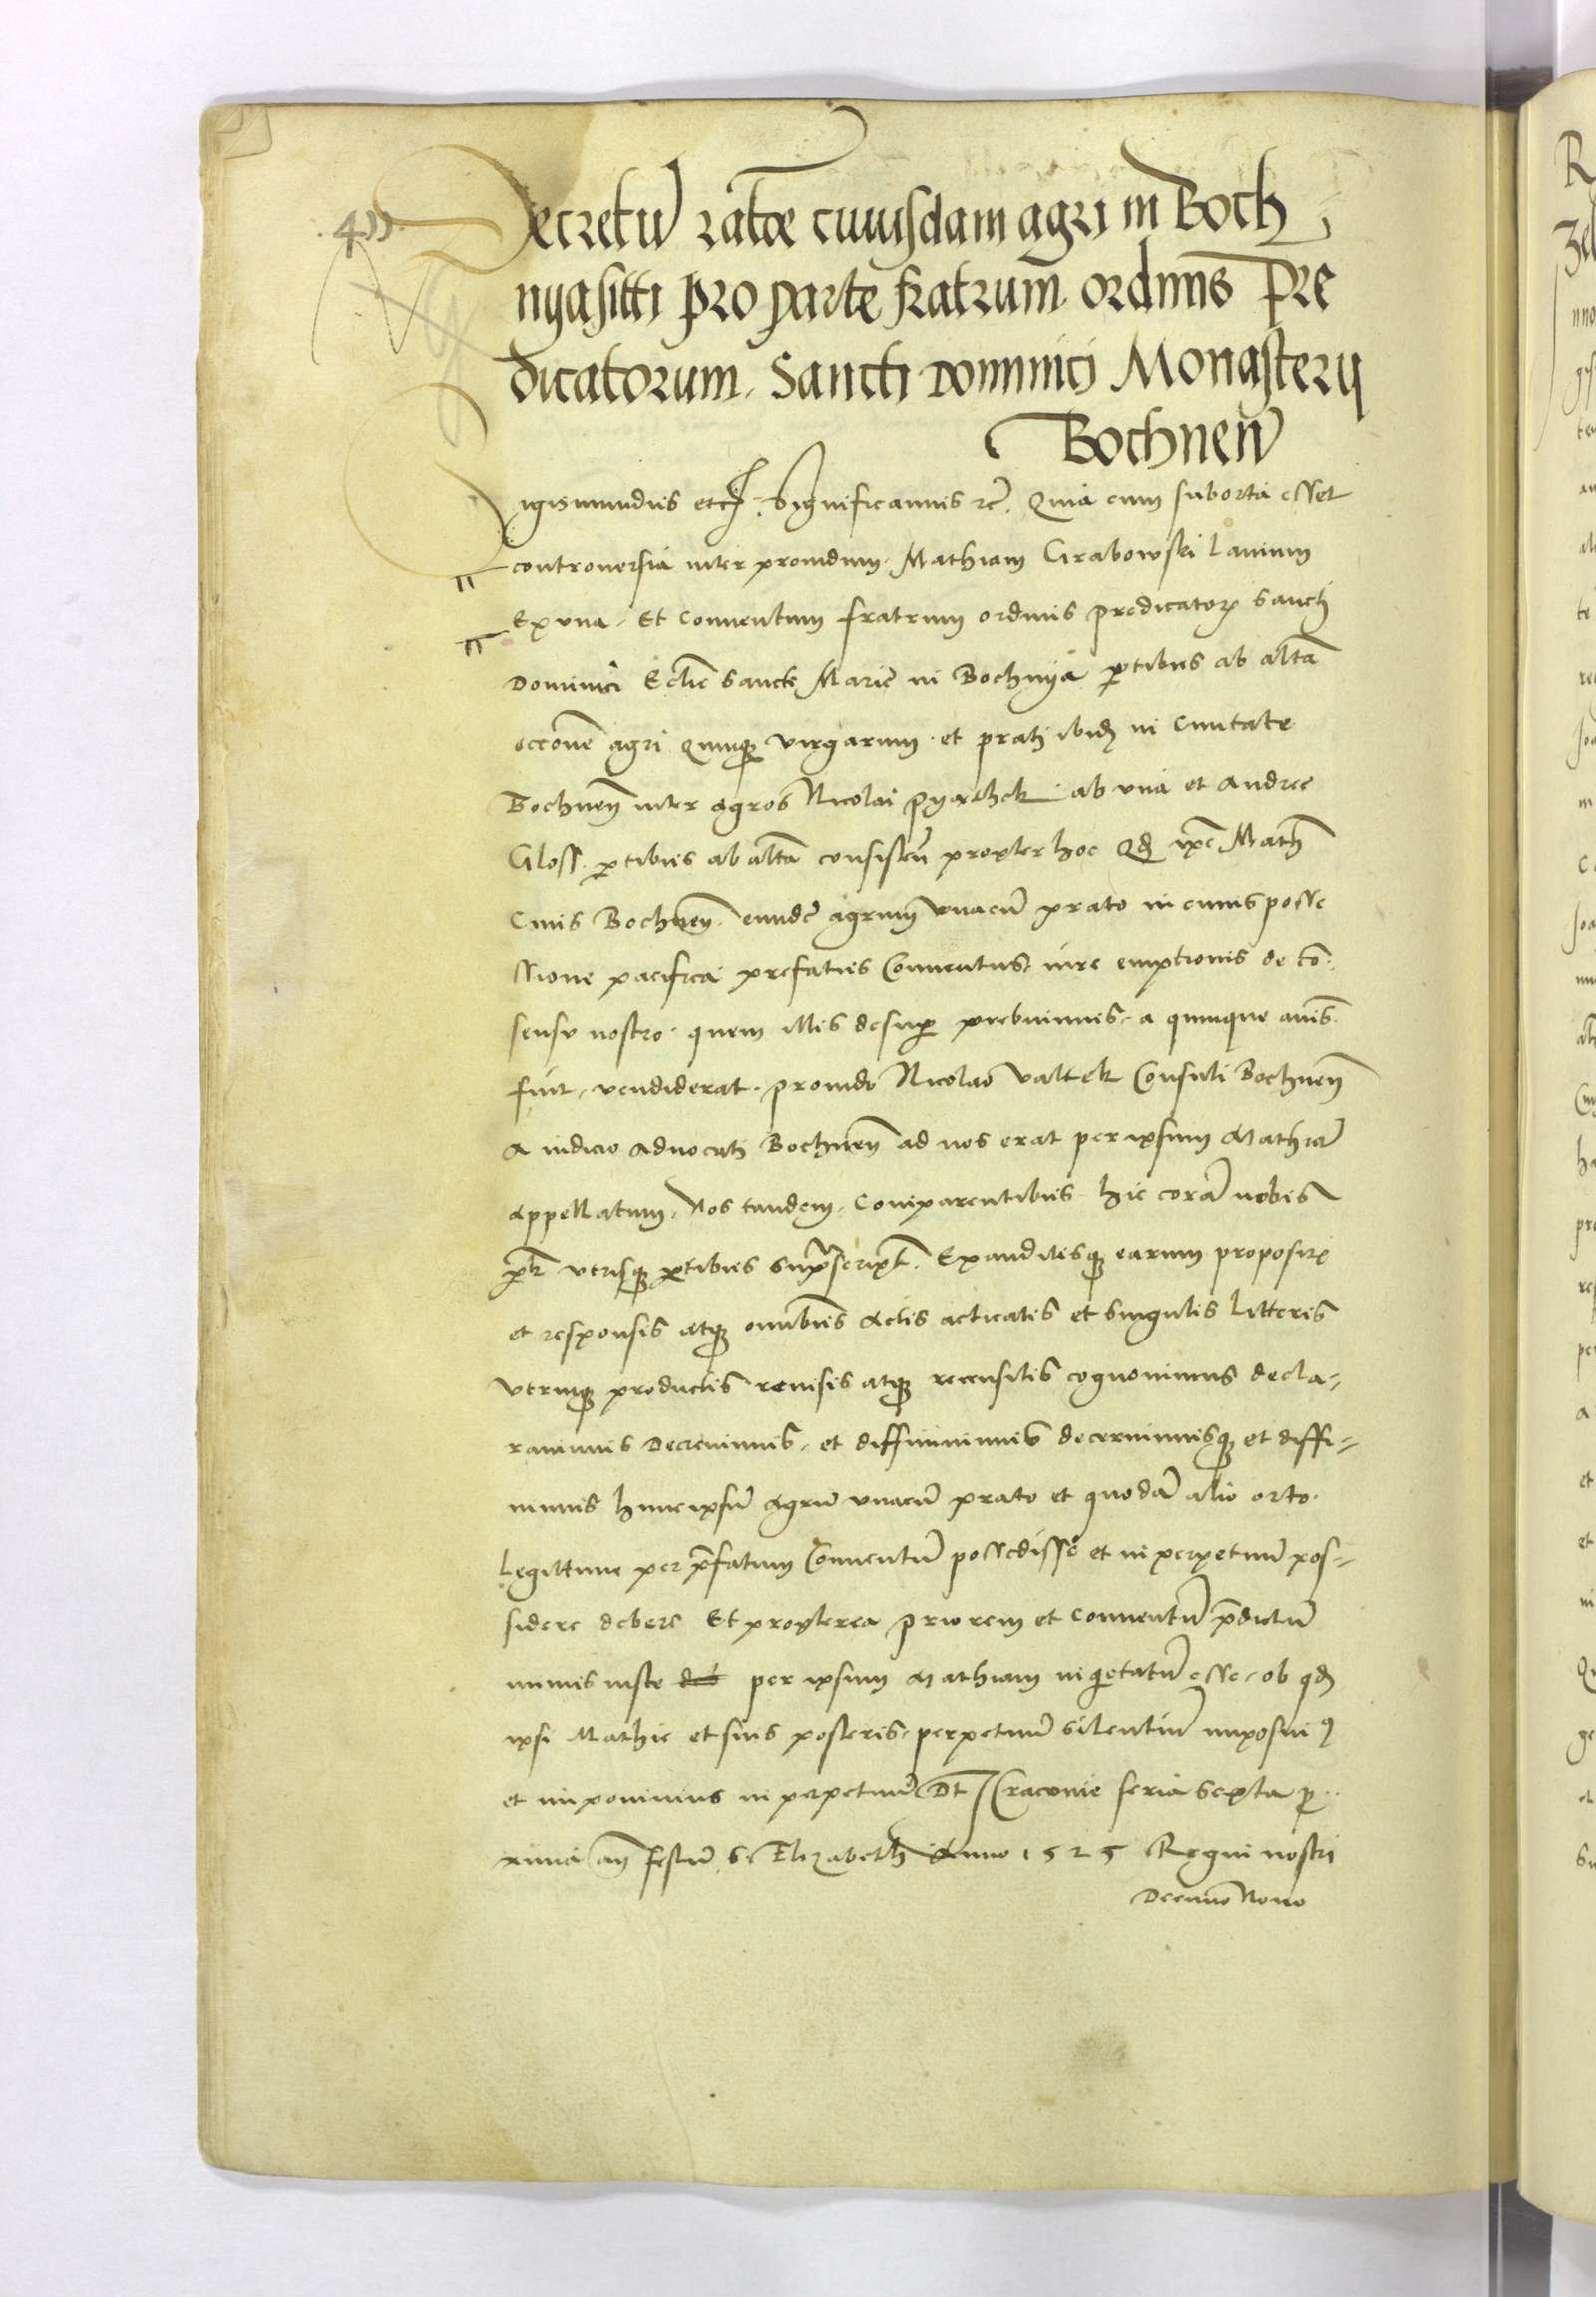 Decretu ratõe cuiusdam agri in Boch
nya sitti pro parte fratrum ordinis Pre
dicatorum Sancti Dominici Monasterij
Bochnen
Sigismundus etc Significamus rc. Quia cum suborta esset
controuersia inter prouidum Mathiam Grabowski Lanium
Ex una. Et Conuentum fratrum ordinis predicator Sancti
Dominici Ecclie Sancte Marie in Bochnya ptibus ab alta
occone agri quinq virgarum et prati ibid in Ciuitate
Bochnen inter agros Nicolai Pyathek ab una et Andree
Gloss. ptibus ab alta consisten propter hoc Qd ipe Math
Ciuis Bochnen. eunde agrum unacu prato in cuius posse
ssione pacifica prefatus Conuentus iure emptionis de co
sensu nostro quem illis desup prebuimus a quinque anis
fuit, vendiderat. prouido Nicolao Valtek Consuli Bochnen
A iudicio aduocati Bochnen ad nos erat per ipsum Mathia
appellatum. Nos tandem Comparentibus hic cora nobis
utrisq ptibus suprascript. Exauditisq earum proposit
et responsis atq omnibus Actis acticatis et singulis Litteris
utrinq productis reuisis atq recensitis cognouimus decla-
rauimus Decreuimus, et diffiniuimus decernimusq et diffi-
nimus hunc ipsu Agru unacu prato et quoda alio orto.
Legittime per prefatum Conuentu possedisse et in perpetuu pos-
sidere debere Et propterea priorem et Conuentu predictu
minus iuste per ipsum Mathiam inquietatu esse, ob qd
ipsi Mathie et suis posteris perpetuu silentiu imposui9
et imponimus in perpetuu Dt Cracouie feria Sexta p
xima an festu S. Elizabeth Anno 1525 Regni nostri
Decimo Nono